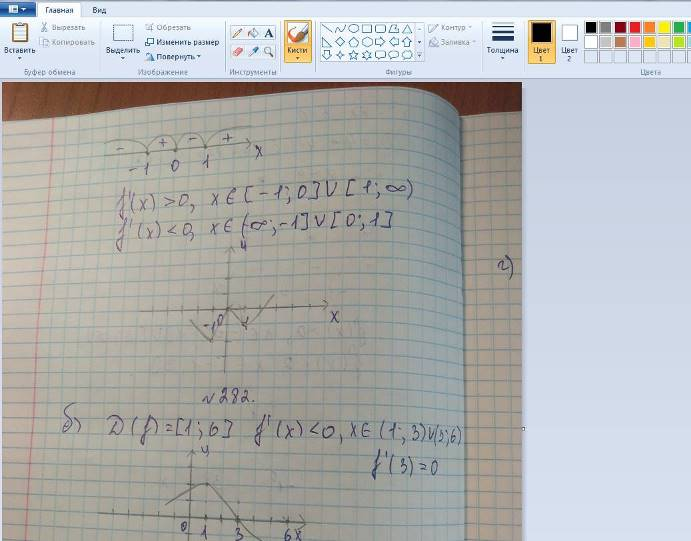 Главная Вид
Вставить
Вырезать
Копировать
Буфер обмена
Выделить
Обрезать
Изменить размер
Повернуть
Изображение
Инструменты
Кисти
Контур
Заливка
Фигуры
Толщина
Цвет 1
Цвет 2
Цвета
- + - +
-1 0 1 x
f'(x) > 0, x ∈ [-1; 0] ∪ [1; ∞)
f'(x) < 0, x ∈ (-∞; -1] ∪ [0; 1]
y
г)
-1 0 1 x
№282.
б) D(f) = [1; 6] f'(x) < 0, x ∈ (1; 3) ∪ (3; 6)
f'(3) = 0
y
0 1 3 6 x